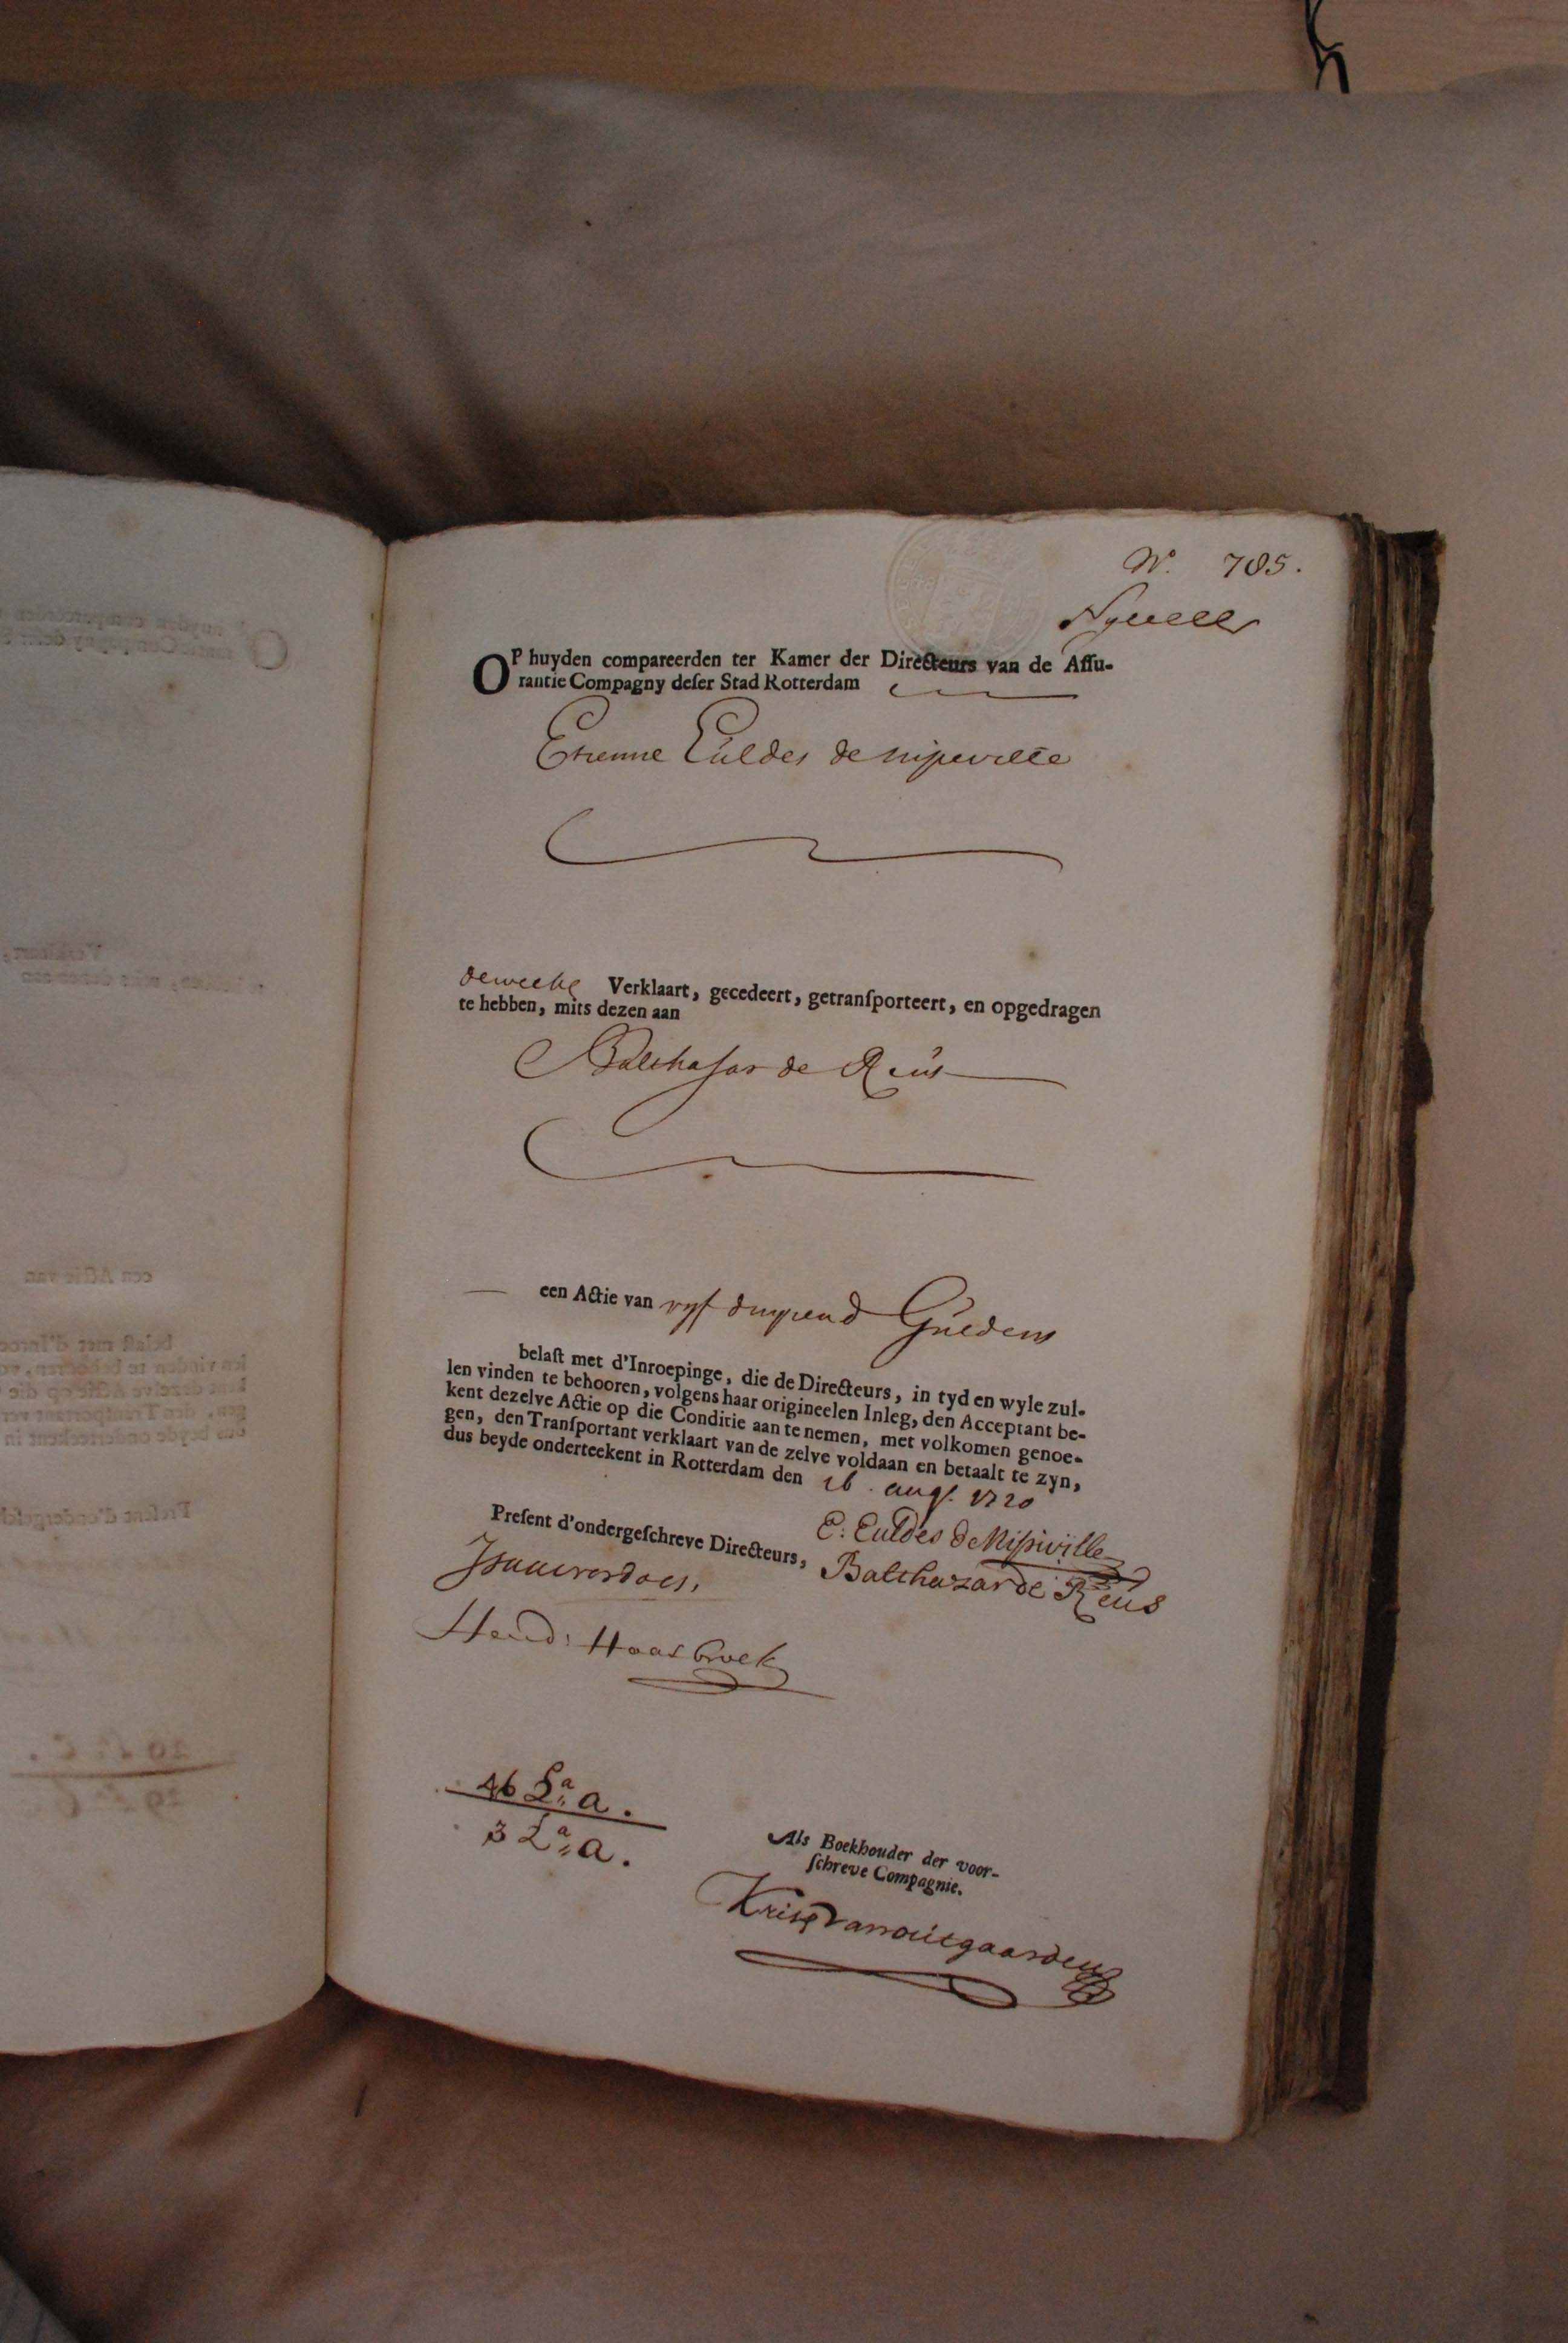 N.o 785.
OP huyden compareerden ter Kamer der Directeurs van de Aſſu-
rantie Compagny deſer Stad Rotterdam
Etienne Euldes de nipeville
deweeke Verklaart, gecedeert, getranſporteert, en opgedragen
te hebben, mits dezen aan
Balthasar de Reus
een Actie van vyf duysend Guldens
belaſt met d'Inroepinge, die de Directeurs, in tyd en wyle zul-
len vinden te behooren, volgens haar origineelen Inleg, den Acceptant be-
kent dezelve Actie op die Conditie aan te nemen, met volkomen genoe-
gen, den Tranſportant verklaart van de zelve voldaan en betaalt te zyn,
dus beyde onderteekent in Rotterdam den 16. augs. 1720
E: Euldes de Nispiville
Preſent d'ondergeſchreve Directeurs,
Balthazar de Reus
Hend: Haasbroek
46 L.a a.
3 L.a a.
Als Boekhouder der voor-
ſchreve Compagnie.
Kris van outgaarden